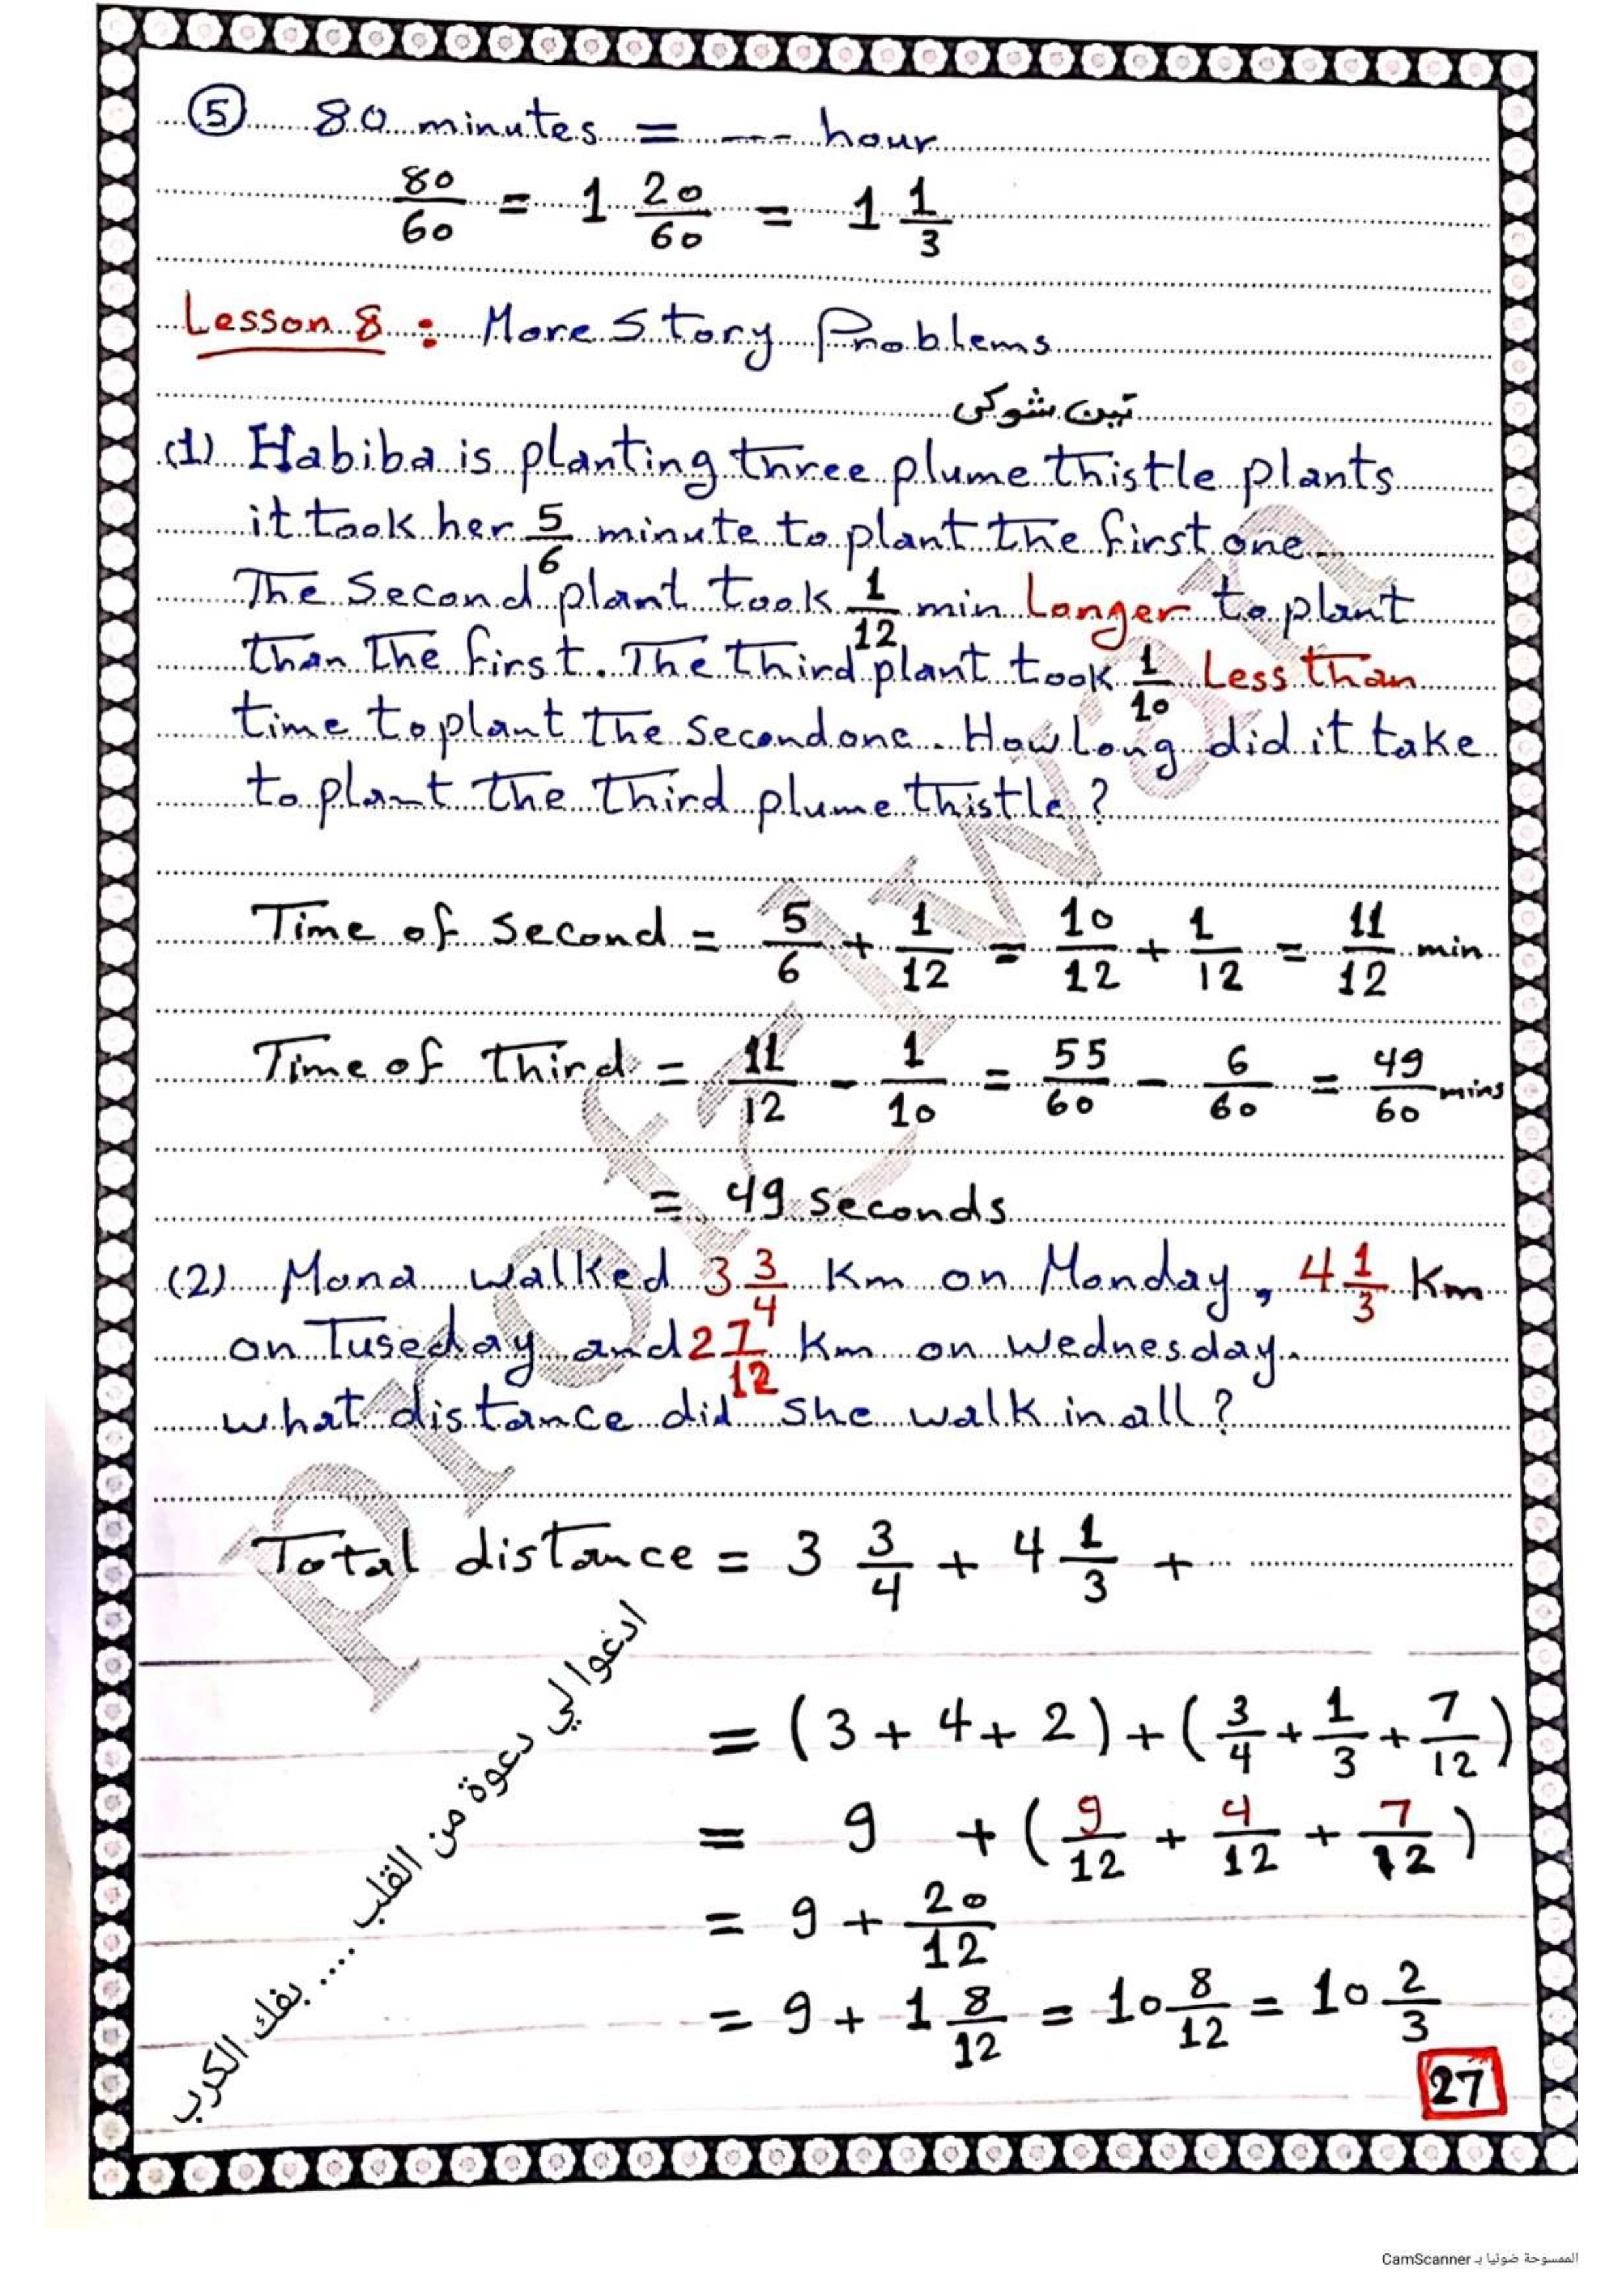 ⑤ 80 minutes = --- hour
80/60 = 1 20/60 = 1 1/3
Lesson 8 : More Story Problems
تين شوكى
(1) Habiba is planting three plume thistle plants
it took her 5/6 minute to plant the first one
The second plant took 1/12 min Longer to plant
than the first. The third plant took 1/10 Less than
time to plant the second one. How Long did it take
to plant the third plume thistle ?
Time of second = 5/6 + 1/12 = 10/12 + 1/12 = 11/12 min
Time of third = 11/12 - 1/10 = 55/60 - 6/60 = 49/60 mins
= 49 seconds
(2) Mona walked 3 3/4 Km on Monday, 4 1/3 Km
on Tuseday and 2 7/12 Km on Wednesday.
what distance did she walk in all ?
Total distance = 3 3/4 + 4 1/3 + ...
= (3 + 4 + 2) + (3/4 + 1/3 + 7/12)
= 9 + (9/12 + 4/12 + 7/12)
= 9 + 20/12
= 9 + 1 8/12 = 10 8/12 = 10 2/3
ادعوا لي دعوة من القلب .... بفك الكرب
27
الممسوحة ضوئيا بـ CamScanner